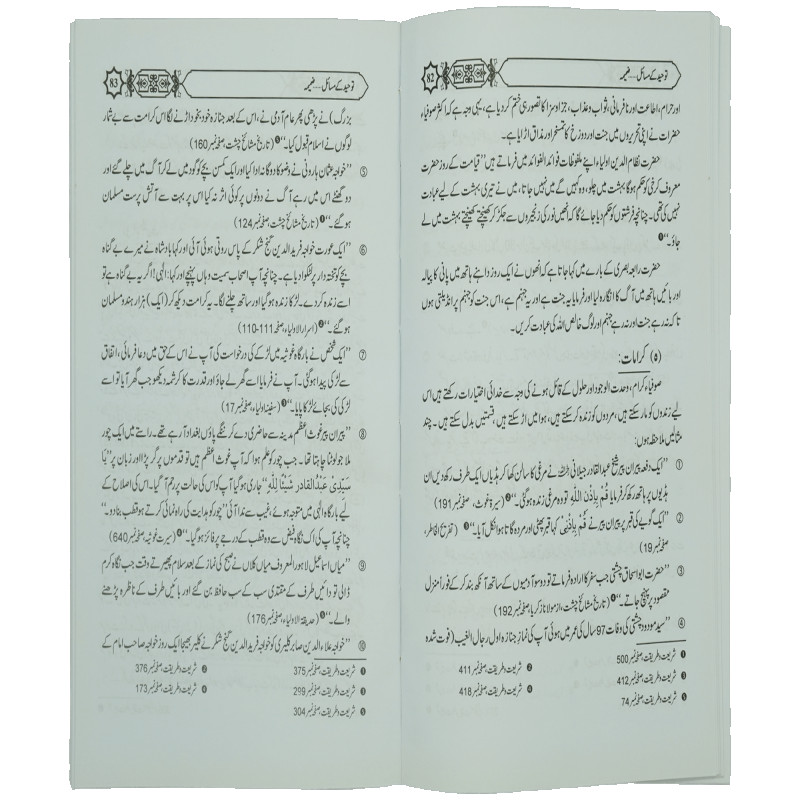 82
توحید کے مسائل.....ضمیمہ
اور حرام، اطاعت اور نافرمانی، ثواب و عذاب، جزا و سزا کا تصور ہی ختم کر دیا ہے، یہی وجہ ہے کہ اکثر صوفیاء
حضرات نے اپنی تحریروں میں جنت اور دوزخ کا تمسخر اور مذاق اڑایا ہے۔
حضرت نظام الدین اولیاء اپنے ملفوظات فوائد الفوائد میں فرماتے ہیں ”قیامت کے روز حضرت
معروف کرخی کو حکم ہوگا بہشت میں چلو وہ کہیں گے میں نہیں جاتا، میں نے تیری بہشت کے لیے عبادت
نہیں کی تھی۔ چنانچہ فرشتوں کو حکم دیا جائے گا کہ انھیں نور کی زنجیروں سے جکڑ کر کھینچتے کھینچتے بہشت میں لے
جاؤ۔“
حضرت رابعہ بصری کے بارے میں کہا جاتا ہے کہ انھوں نے ایک روز داہنے ہاتھ میں پانی کا پیالہ
اور بائیں ہاتھ میں آگ کا انگارہ لیا اور فرمایا یہ جنت ہے اور یہ جہنم ہے، اس جنت کو جہنم پر انڈیلتی ہوں
تا کہ نہ رہے جنت اور نہ رہے جہنم اور لوگ خالص اللہ کی عبادت کریں۔
(۵) کرامات:
صوفیاء کرام، وحدت الوجود اور حلول کے قائل ہونے کی وجہ سے خدائی اختیارات رکھتے ہیں اس
لیے زندوں کو مار سکتے ہیں، مردوں کو زندہ کر سکتے ہیں، ہوا میں اڑ سکتے ہیں، قسمتیں بدل سکتے ہیں۔ چند
مثالیں ملاحظہ ہوں:
① ”ایک دفعہ پیران پیر شیخ عبدالقادر جیلانی نے مرغی کا سالن کھا کر ہڈیاں ایک طرف رکھ دیں ان
ہڈیوں پر ہاتھ رکھ کر فرمایا قُمْ بِإِذْنِ اللّٰہِ تو وہ مرغی زندہ ہوگئی۔“ (سیرت غوث، صفحہ نمبر 191)
② ”ایک گویے کی قبر پر پیران پیر نے قُمْ بِإِذْنِيْ کہا قبر پھٹی اور مردہ گاتا ہوا نکل آیا۔“ (تفریح الخاطر،
صفحہ نمبر 19)
③ ”حضرت ابو اسحاق چشتی جب سفر کا ارادہ فرماتے تو دو سو آدمیوں کے ساتھ آنکھ بند کر کے فوراً منزل
مقصود پر پہنچ جاتے۔“ (تاریخ مشائخ چشت، از مولانا زکریا، صفحہ نمبر 192)
④ ”سید مودود چشتی کی وفات 97 سال کی عمر میں ہوئی آپ کی نماز جنازہ اول رجال الغیب (فوت شدہ
❶ شریعت و طریقت، صفحہ نمبر 500
❷ شریعت و طریقت، صفحہ نمبر 411
❸ شریعت و طریقت، صفحہ نمبر 412
❹ شریعت و طریقت، صفحہ نمبر 418
❺ شریعت و طریقت، صفحہ نمبر 74
83
توحید کے مسائل.....ضمیمہ
بزرگ) نے پڑھی پھر عام آدمی نے، اس کے بعد جنازہ خود بخود اڑنے لگا اس کرامت سے بے شمار
لوگوں نے اسلام قبول کیا۔“ (تاریخ مشائخ چشت، صفحہ نمبر 160)
⑤ ”خواجہ عثمان ہارونی نے وضو کا دوگانہ ادا کیا اور ایک کمسن بچے کو گود میں لے کر آگ میں چلے گئے اور
دو گھنٹے اس میں رہے آگ نے دونوں پر کوئی اثر نہ کیا اس پر بہت سے آتش پرست مسلمان
ہوگئے۔“ (تاریخ مشائخ چشت، صفحہ نمبر 124)
⑥ ”ایک عورت خواجہ فرید الدین گنج شکر کے پاس روتی ہوئی آئی اور کہا بادشاہ نے میرے بے گناہ
بچے کو تختہ دار پر لٹکوا دیا ہے۔ چنانچہ آپ اصحاب سمیت وہاں پہنچے اور کہا: الٰہی! اگر یہ بے گناہ ہے تو
اسے زندہ کر دے۔ لڑکا زندہ ہوگیا اور ساتھ چلنے لگا۔ یہ کرامت دیکھ کر (ایک) ہزار ہندو مسلمان
ہوگئے۔“ (اسرار الاولیاء، صفحہ 111-110)
⑦ ”ایک شخص نے بارگاہ غوثیہ میں لڑکے کی درخواست کی آپ نے اس کے حق میں دعا فرمائی، اتفاق
سے لڑکی پیدا ہوگئی۔ آپ نے فرمایا اسے گھر لے جاؤ اور قدرت کا کرشمہ دیکھو جب گھر آیا تو اسے
لڑکی کی بجائے لڑکا پایا۔“ (سفینہ اولیاء، صفحہ نمبر 17)
⑧ ”پیران پیر غوث اعظم مدینہ سے حاضری دے کر ننگے پاؤں بغداد آ رہے تھے۔ راستے میں ایک چور
ملا جو لوٹنا چاہتا تھا۔ جب چور کو علم ہوا کہ آپ غوث اعظم ہیں تو قدموں پر گر پڑا اور زبان پر ”یَا
سَیِّدِیْ عَبْدُالْقَادِرِ شَیْئًا لِلّٰہِ“ جاری ہوگیا آپ کو اس کی حالت پر رحم آگیا۔ اس کی اصلاح کے
لیے بارگاہ الٰہی میں متوجہ ہوئے، غیب سے ندا آئی ”چور کو ہدایت کی راہ نمائی کرتے ہو قطب بنا دو۔“
چنانچہ آپ کی اک نگاہ فیض سے وہ قطب کے درجہ پر فائز ہوگیا۔“ (سیرت غوثیہ، صفحہ نمبر 640)
⑨ ”میاں اسماعیل لاہور المعروف میاں کلاں نے صبح کی نماز کے بعد سلام پھیرتے وقت جب نگاہ کرم
ڈالی تو دائیں طرف کے مقتدی سب کے سب حافظ بن گئے اور بائیں طرف کے ناظرہ پڑھنے
والے۔“ (حدیقۃ الاولیاء، صفحہ نمبر 176)
⑩ ”خواجہ علاء الدین صابر کلیری کو خواجہ فرید الدین گنج شکر نے کلیر بھیجا ایک روز خواجہ صاحب امام کے
❶ شریعت و طریقت، صفحہ نمبر 375
❷ شریعت و طریقت، صفحہ نمبر 376
❸ شریعت و طریقت، صفحہ نمبر 299
❹ شریعت و طریقت، صفحہ نمبر 173
❺ شریعت و طریقت، صفحہ نمبر 304